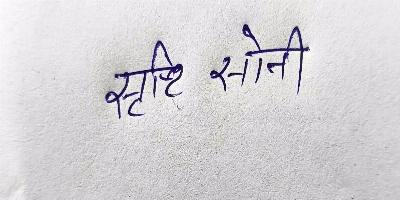 सृष्टि सोनी